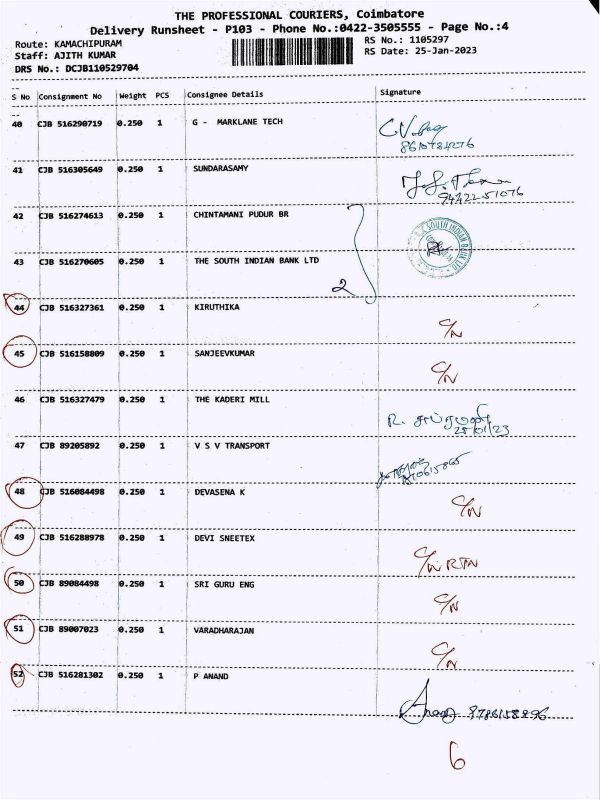 THE PROFESSIONAL COURIERS, Coimbatore
Delivery Runsheet - P103 - Phone No.:0422-3505555 - Page No.:4
Route: KAMACHIPURAM
Staff: AJITH KUMAR
DRS No.: DCJB110529704
RS No.: 1105297
RS Date: 25-Jan-2023
S No Consignment No Weight PCS Consignee Details Signature
40 CJB 516290719 0.250 1 G - MARKLANE TECH
41 CJB 516305649 0.250 1 SUNDARASAMY
42 CJB 516274613 0.250 1 CHINTAMANI PUDUR BR
43 CJB 516270605 0.250 1 THE SOUTH INDIAN BANK LTD 2
44 CJB 516327361 0.250 1 KIRUTHIKA C/N
45 CJB 516158809 0.250 1 SANJEEVKUMAR C/N
46 CJB 516327479 0.250 1 THE KADERI MILL
25/01/23
47 CJB 89205892 0.250 1 V S V TRANSPORT
48 CJB 516084498 0.250 1 DEVASENA K C/N
49 CJB 516288978 0.250 1 DEVI SNEETEX C/N RTN
50 CJB 89084498 0.250 1 SRI GURU ENG C/N
51 CJB 89007023 0.250 1 VARADHARAJAN C/N
52 CJB 516281302 0.250 1 P ANAND
6